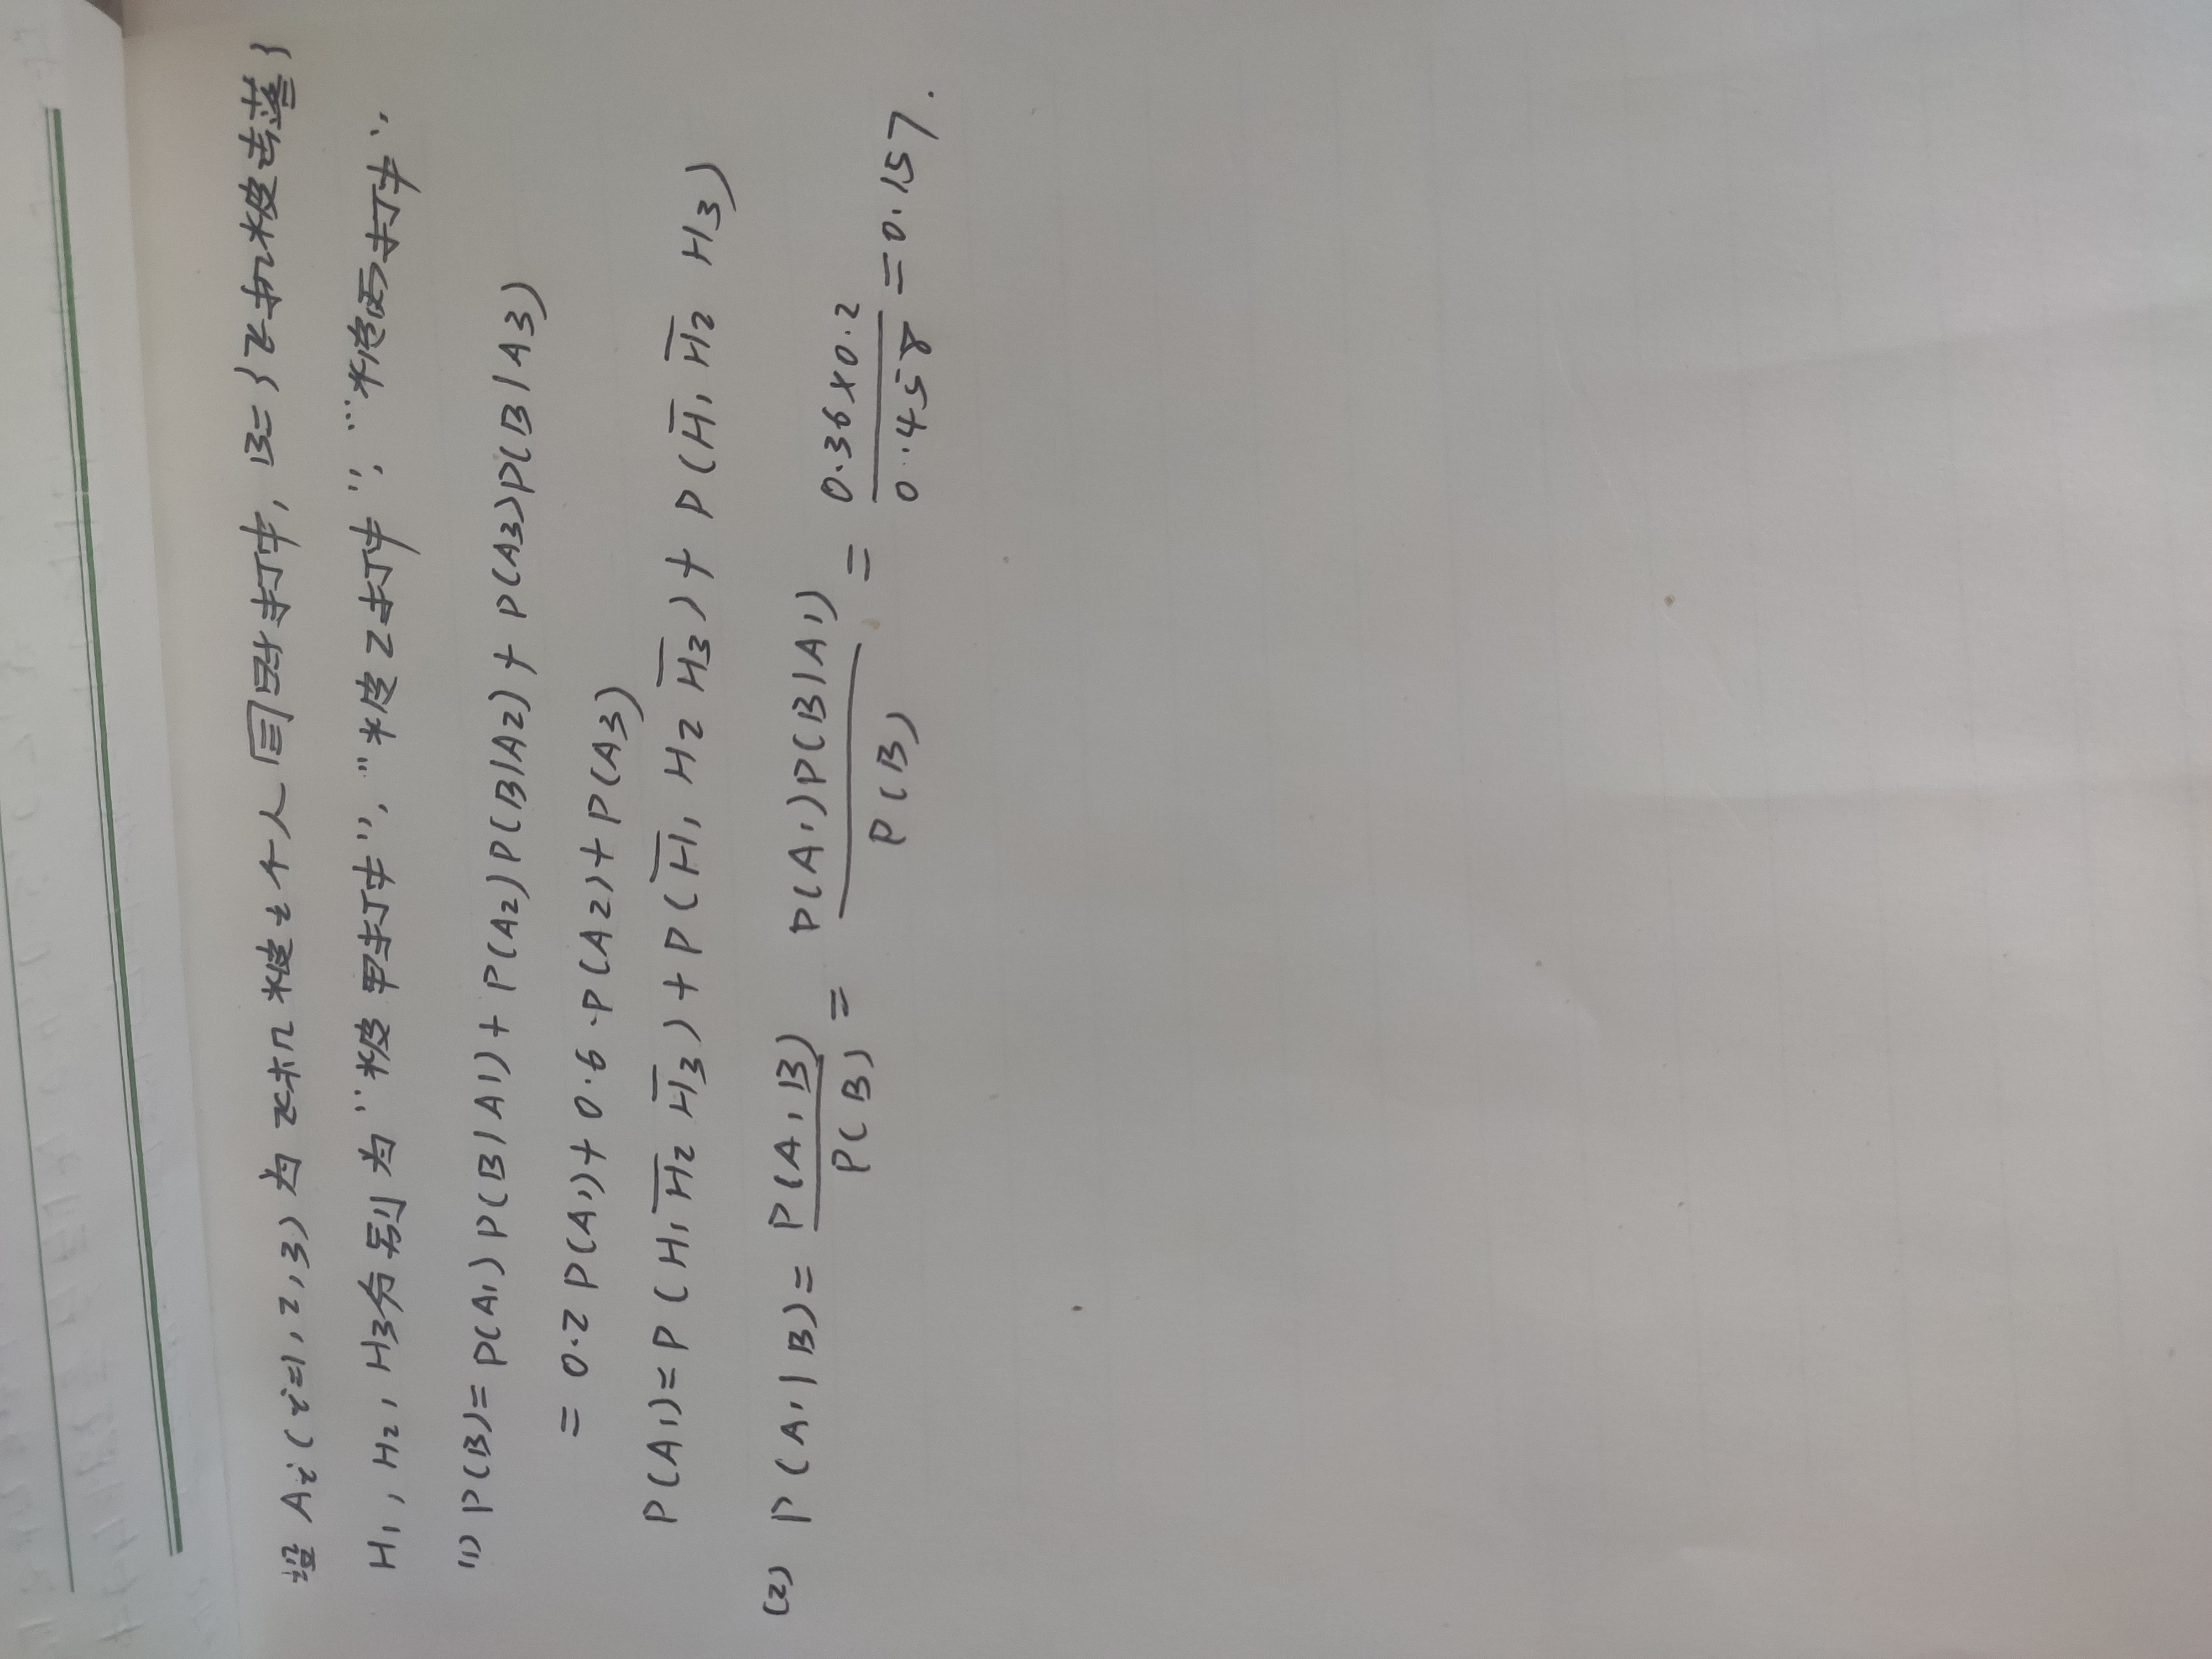 设 Ai (i=1, 2, 3) 为飞机被i个人同时打中, B={飞机被击落}
H1, H2, H3分别为“被甲打中”, “被乙打中”, “被丙打中”.
(1) P(B)= P(A1) P(B|A1) + P(A2) P(B|A2) + P(A3)P(B|A3)
= 0.2 P(A1)+ 0.6 ·P(A2)+ P(A3)
P(A1)= P (H1 H̅2 H̅3) + P (H̅1 H2 H̅3) + P (H̅1 H̅2 H3)
(2) P(A1|B)= P(A1B)/P(B) = P(A1)P(B|A1)/P(B) = 0.36×0.2/0.458 =0.157.